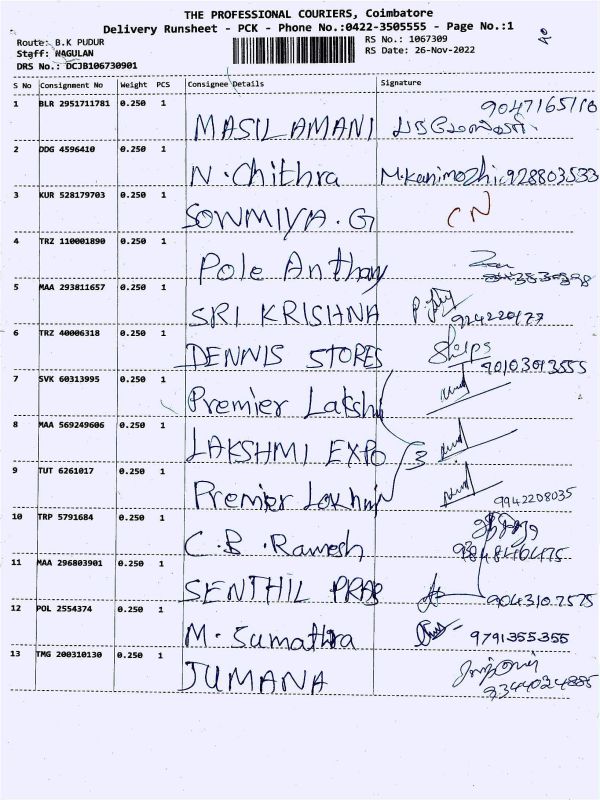 THE PROFESSIONAL COURIERS, Coimbatore
Delivery Runsheet - PCK - Phone No.:0422-3505555 - Page No.:1
Route: B.K PUDUR
RS No.: 1067309
Staff: NAGULAN
RS Date: 26-Nov-2022
DRS No.: DCJB106730901
S No Consignment No Weight PCS Consignee Details Signature
1 BLR 2951711781 0.250 1 MASILAMANI
2 DDG 4596410 0.250 1 N. Chithra M.Kanimozhi.928803533
3 KUR 528179703 0.250 1 SOWMIYA.G CN
4 TRZ 110001890 0.250 1 Pole Anthay
5 MAA 293811657 0.250 1 SRI KRISHNA
6 TRZ 40006318 0.250 1 DENNIS STORES
7 SVK 60313995 0.250 1 Premier Lakshi
8 MAA 569249606 0.250 1 LAKSHMI EXPO 3
9 TUT 6261017 0.250 1 Premier 9942208035
10 TRP 5791684 0.250 1 C.B.Ramesh
11 MAA 296803901 0.250 1 SENTHIL PRAB 9043107575
12 POL 2554374 0.250 1 M. Sumathra 9791355355
13 TMG 200310130 0.250 1 JUMANA